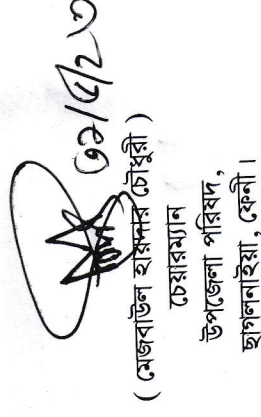 ৩১/৫/২৩
( মেজবাউল হায়দার চৌধুরী )
চেয়ারম্যান
উপজেলা পরিষদ,
ছাগলনাইয়া, ফেনী।